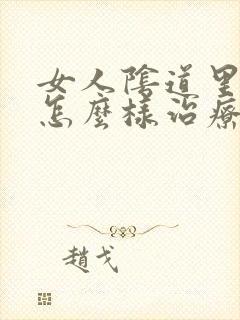 女人陰道里
怎麼樣治療
趙戈